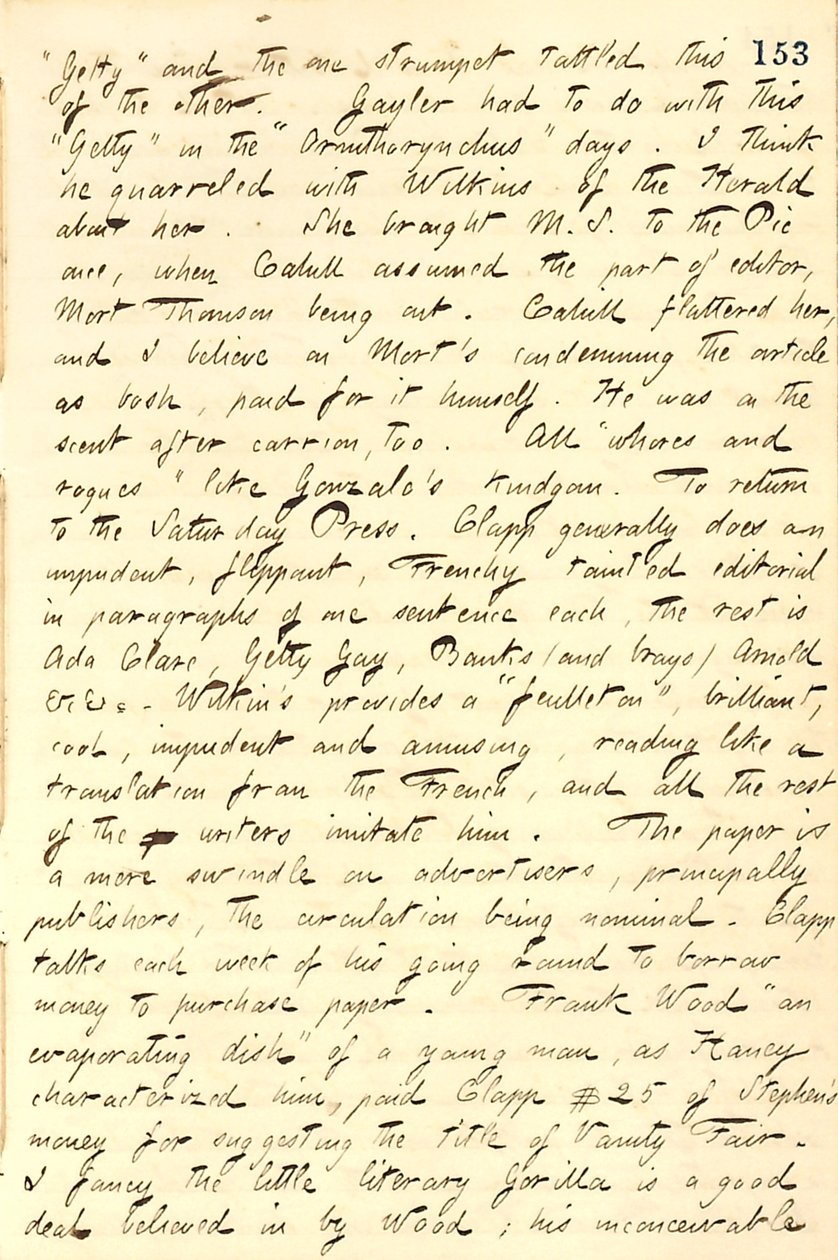 153
"Getty" and the one strumpet tattled this
of the other. Gayler had to do with this
"Getty" in the "Ornithorynchus" days. I think
he quarreled with Wilkins of the Herald
about her. She brought M.S. to the Pic
once, when Cahill assumed the part of editor,
Mort Thomson being out. Cahill flattered her,
and I believe on Mort's condemning the article
as bosh, paid for it himself. He was on the
scent after carrion, too. All "whores and
rogues" like Gonzalo's kindgom. To return
to the Saturday Press. Clapp generally does an
impudent, flippant, Frenchy tainted editorial
in paragraphs of one sentence each, the rest is
Ada Clare, Getty Gay, Banks (and brays) Arnold
&c &c. - Wilkin's provides a "feulleton", brilliant,
cool, impudent and amusing, reading like a
translation from the French, and all the rest
of the writers imitate him. The paper is
a mere swindle on advertisers, principally
publishers, the circulation being nominal. Clapp
talks each week of his going round to borrow
money to purchase paper. Frank Wood "an
evaporating dish" of a young man, as Haney
characterized him, paid Clapp $25 of Stephen's
money for suggesting the title of Vanity Fair.
I fancy the little literary Gorilla is a good
deal believed in by Wood; his inconceivable